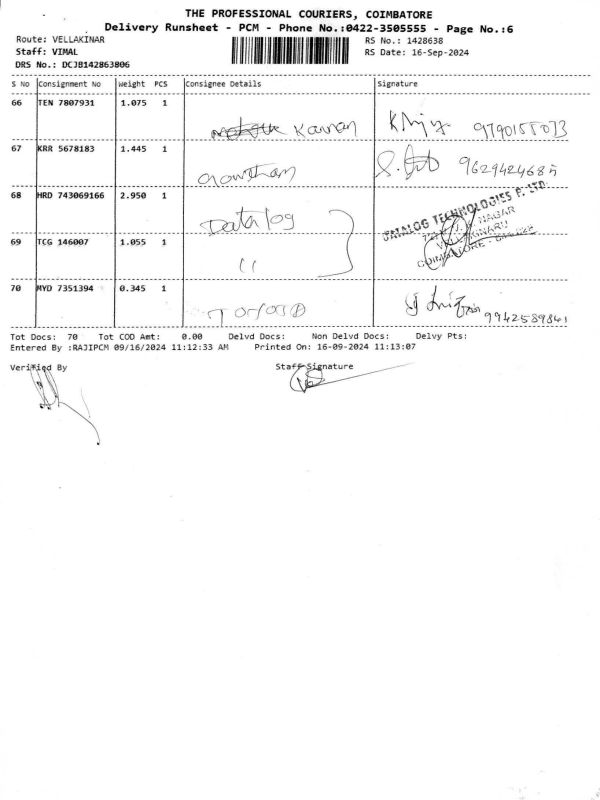 THE PROFESSIONAL COURIERS, COIMBATORE
Delivery Runsheet - PCM - Phone No.:0422-3505555 - Page No.:6
Route: VELLAKINAR RS No.: 1428638
Staff: VIMAL RS Date: 16-Sep-2024
DRS No.: DCJB142863806
S No Consignment No Weight PCS Consignee Details Signature
66 TEN 7807931 1.075 1
Kannan 9790155033
67 KRR 5678183 1.445 1
Gowtham 9629424685
68 HRD 743069166 2.950 1
Datalog DATALOG TECHNOLOGIES P. LTD.
NAGAR
69 TCG 146007 1.055 1
" COIMBATORE
70 MYD 7351394 0.345 1
9942589841
Tot Docs: 70 Tot COD Amt: 0.00 Delvd Docs: Non Delvd Docs: Delvy Pts:
Entered By :RAJIPCM 09/16/2024 11:12:33 AM Printed On: 16-09-2024 11:13:07
Verified By Staff Signature